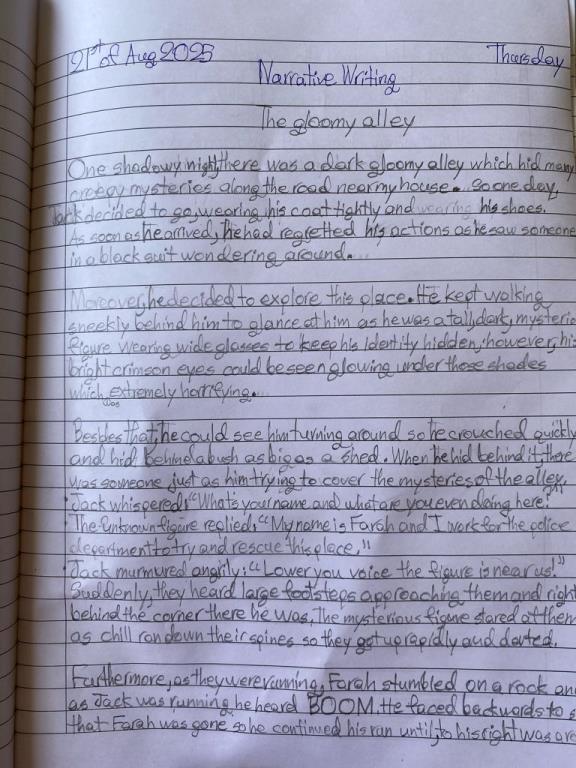 21st of Aug 2025 Thursday
Narrative Writing
The gloomy alley
One shadowy night there was a dark gloomy alley which hid many
creepy mysteries along the road near my house. so one day,
Jack decided to go, wearing his coat tightly and wearing his shoes.
As soon as he arrived, he had regretted his actions as he saw someone
in a black suit wondering around.
Moreover, he decided to explore this place. He kept walking
sneekly behind him to glance at him as he was a tall, dark, mysterio
figure wearing wide glasses to keep his identity hidden, however, his
bright crimson eyes could be seen glowing under those shades
which was extremely horrifying.
Besbes that, he could see him turning around so he crouched quickly
and hid behind a bush as big as a shed. When he hid behind it, there
was someone just as him trying to cover the mysteries of the alley.
Jack whispered: "What's your name and what are you even doing here."
The unknown figure replied, "My name is Farah and I work for the police
department to try and rescue this place."
Jack murmured angrily: "Lower you voice the figure is near us!"
Suddenly, they heard large footsteps approaching them and right
behind the corner there he was, The mysterious figure stared at them
as chill ran down their spines so they got up rapidly and darted.
Furthermore, as they were running, Farah stumbled on a rock and
as Jack was running he heard BOOM. He faced backwords to s
that Farah was gone so he continued his run until, to his right was a